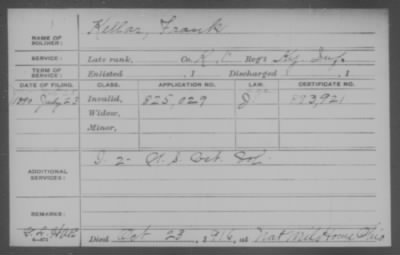 NAME OF SOLDIER: Kellar, Frank
SERVICE: Late rank, Co. K, Reg't Ky. Inf.
TERM OF SERVICE: Enlisted , 1 Discharged , 1
DATE OF FILING. CLASS. APPLICATION NO. LAW. CERTIFICATE NO.
1890 July 23 Invalid, 825,029 J 893,921
Widow,
Minor,
ADDITIONAL SERVICES: D. 2- U. S. Vet. Vol.
REMARKS:
Died Oct 23, 1916, at Nat Mil Home Ohio